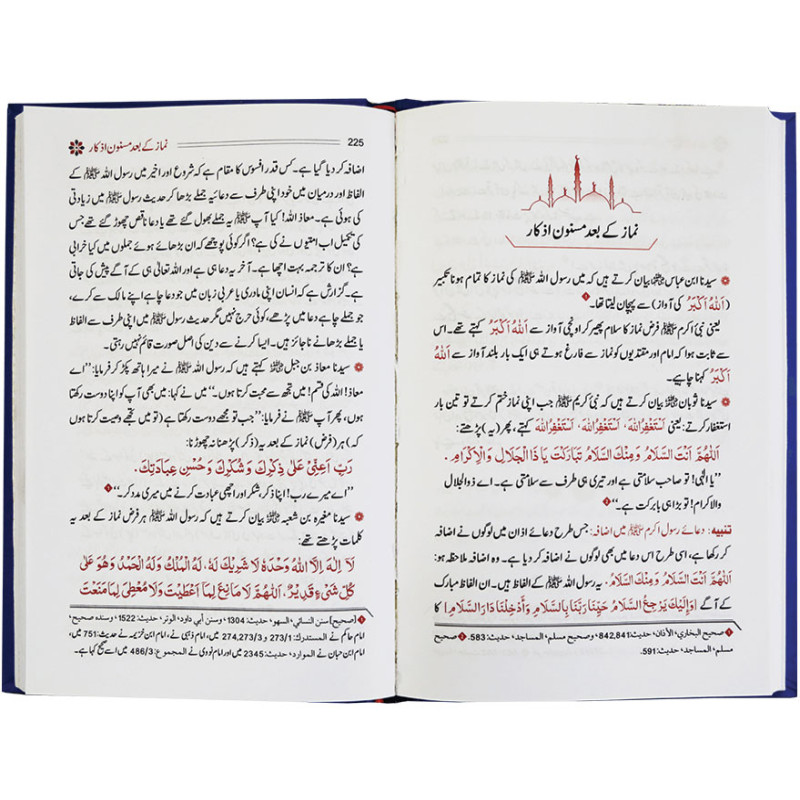 نماز کے بعد مسنون اذکار
سیدنا ابن عباس رضی اللہ عنہما بیان کرتے ہیں کہ میں رسول اللہ ﷺ کی نماز کا تمام ہونا تکبیر
(اَللّٰهُ اَكْبَرُ کی آواز) سے پہچان لیتا تھا۔
یعنی نبیٔ اکرم ﷺ فرض نماز کا سلام پھیر کر اونچی آواز سے اَللّٰهُ اَكْبَرُ کہتے تھے۔ اس
سے ثابت ہوا کہ امام اور مقتدیوں کو نماز سے فارغ ہوتے ہی ایک بار بلند آواز سے اَللّٰهُ
اَكْبَرُ کہنا چاہیے۔
سیدنا ثوبان رضی اللہ عنہ بیان کرتے ہیں کہ نبیٔ کریم ﷺ جب اپنی نماز ختم کرتے تو تین بار
استغفار کرتے: یعنی اَسْتَغْفِرُ اللّٰهَ، اَسْتَغْفِرُ اللّٰهَ، اَسْتَغْفِرُ اللّٰهَ کہتے، پھر (یہ) پڑھتے:
اَللّٰهُمَّ اَنْتَ السَّلَامُ وَمِنْكَ السَّلَامُ تَبَارَكْتَ يَا ذَا الْجَلَالِ وَالْاِكْرَامِ.
”یا الٰہی! تو صاحب سلامتی ہے اور تیری ہی طرف سے سلامتی ہے۔ اے ذوالجلال
والاکرام! تو بڑا ہی بابرکت ہے۔“
تنبیہ: دعائے رسول اکرم ﷺ میں اضافہ: جس طرح دعائے اذان میں لوگوں نے اضافہ
کر رکھا ہے، اسی طرح اس دعا میں بھی لوگوں نے اضافہ کر دیا ہے۔ وہ اضافہ ملاحظہ ہو:
اَللّٰهُمَّ اَنْتَ السَّلَامُ وَمِنْكَ السَّلَامُ. یہ رسول اللہ ﷺ کے الفاظ ہیں۔ ان الفاظ مبارک
کے آگے [وَاِلَيْكَ يَرْجِعُ السَّلَامُ حَيِّنَا رَبَّنَا بِالسَّلَامِ وَاَدْخِلْنَا دَارَ السَّلَامِ] کا
1 صحيح البخاري، الأذان، حديث: 842,841، وصحيح مسلم، المساجد، حديث: 583. 2 صحيح
مسلم، المساجد، حديث: 591.
225 نماز کے بعد مسنون اذکار
اضافہ کر دیا گیا ہے۔ کس قدر افسوس کا مقام ہے کہ شروع اور اخیر میں رسول اللہ ﷺ کے
الفاظ اور درمیان میں خود اپنی طرف سے دعائیہ جملے بڑھا کر حدیث رسول ﷺ میں زیادتی
کی ہوئی ہے۔ معاذ اللہ! کیا آپ ﷺ یہ جملے بھول گئے تھے یا دعا ناقص چھوڑ گئے تھے جس
کی تکمیل اب امتیوں نے کی ہے؟ اگر کوئی پوچھے کہ ان بڑھائے ہوئے جملوں میں کیا خرابی
ہے؟ ان کا ترجمہ بہت اچھا ہے۔ آخر یہ دعا ہی ہے اور اللہ تعالیٰ ہی کے آگے پیش کی جاتی
ہے۔ گزارش ہے کہ انسان اپنی مادری یا عربی زبان میں جو دعا چاہے اپنے مالک سے کرے،
جو جملے چاہے دعا میں پڑھے، کوئی حرج نہیں مگر حدیث رسول ﷺ میں اپنی طرف سے الفاظ
یا جملے بڑھانے ناجائز ہیں۔ ایسا کرنے سے دین کی اصل صورت قائم نہیں رہتی۔
سیدنا معاذ بن جبل رضی اللہ عنہ کہتے ہیں کہ رسول اللہ ﷺ نے میرا ہاتھ پکڑ کر فرمایا: ”اے
معاذ! اللہ کی قسم! میں تجھ سے محبت کرتا ہوں۔“ میں نے کہا: میں بھی آپ کو اپنا دوست رکھتا
ہوں، پھر آپ ﷺ نے فرمایا: ”جب تو مجھے دوست رکھتا ہے (تو میں تجھے وصیت کرتا ہوں
کہ) ہر (فرض) نماز کے بعد یہ (ذکر) پڑھنا نہ چھوڑنا:
رَبِّ اَعِنِّيْ عَلٰى ذِكْرِكَ وَشُكْرِكَ وَحُسْنِ عِبَادَتِكَ.
”اے میرے رب! اپنا ذکر، شکر اور اچھی عبادت کرنے میں میری مدد کر۔“
سیدنا مغیرہ بن شعبہ رضی اللہ عنہ بیان کرتے ہیں کہ رسول اللہ ﷺ ہر فرض نماز کے بعد یہ
کلمات پڑھتے تھے:
لَا اِلٰهَ اِلَّا اللّٰهُ وَحْدَهٗ لَا شَرِيْكَ لَهٗ، لَهُ الْمُلْكُ وَلَهُ الْحَمْدُ وَهُوَ عَلٰى
كُلِّ شَيْءٍ قَدِيْرٌ، اَللّٰهُمَّ لَا مَانِعَ لِمَا اَعْطَيْتَ وَلَا مُعْطِيَ لِمَا مَنَعْتَ
1 [صحيح] سنن النسائي، السهو، حديث: 1304، وسنن أبي داود، الوتر، حديث: 1522، وسنده صحيح،
امام حاکم نے المستدرك: 273/1 و 274,273/3 میں، امام ذہبی نے، امام ابن خزیمہ نے حدیث: 751 میں،
امام ابن حبان نے الموارد، حديث: 2345 میں اور امام نووی نے المجموع: 486/3 میں اسے صحیح کہا ہے۔